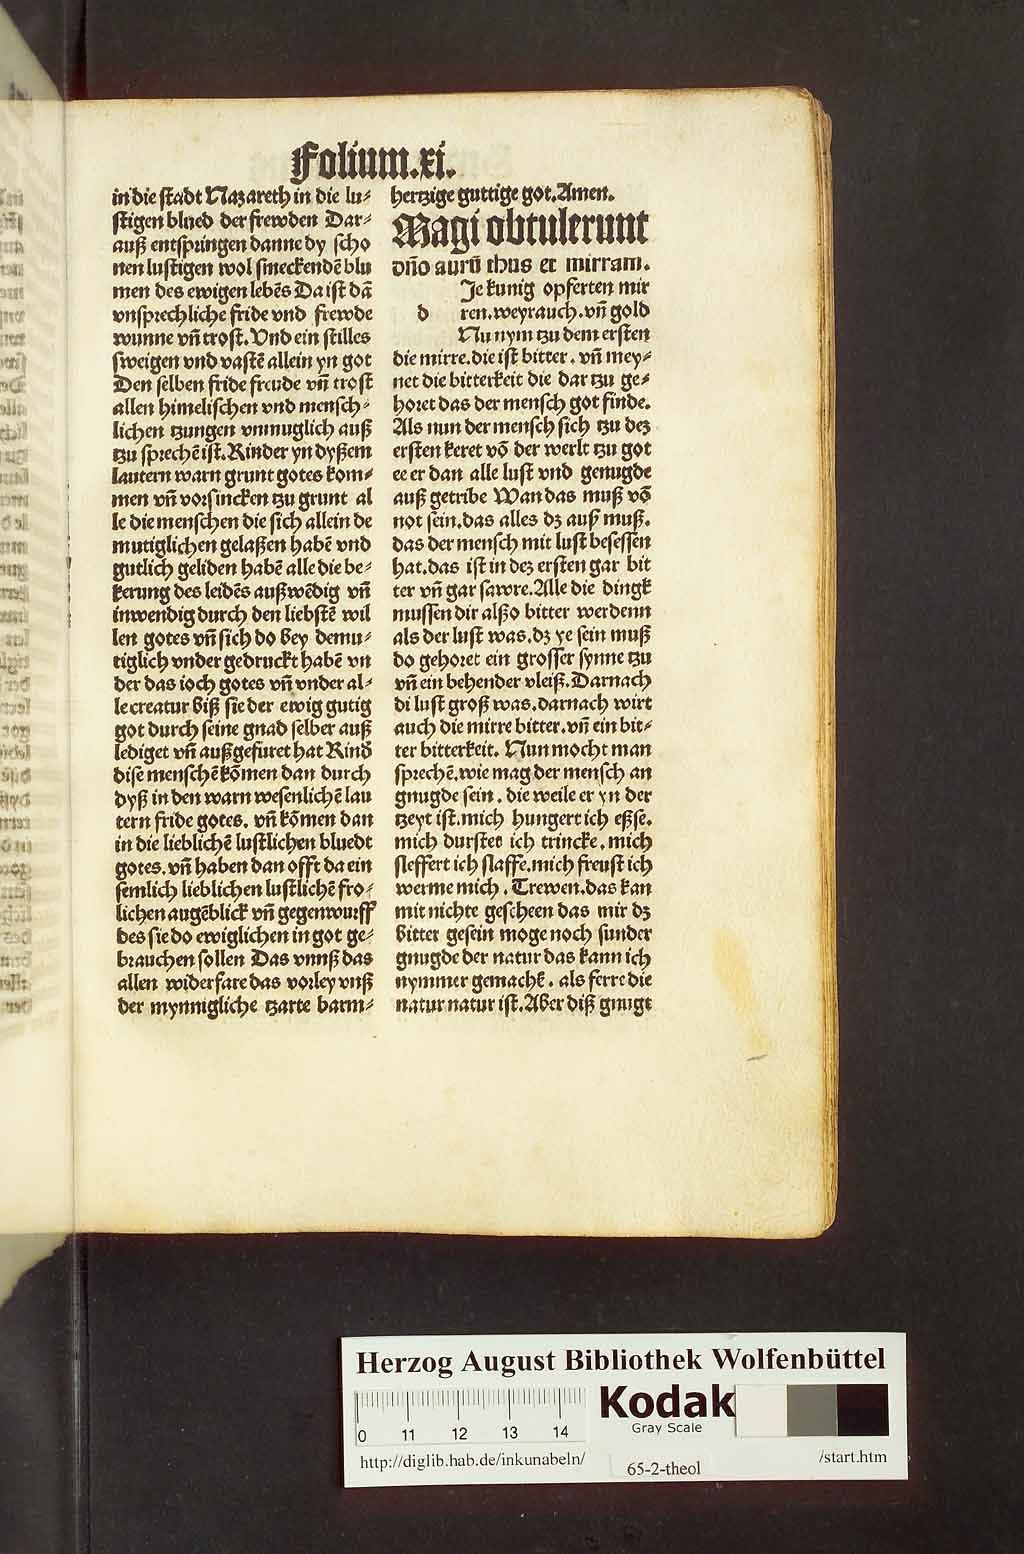 Folium.xi.
in die stadt Nazareth in die lu-
stigen blued der frewden Dar-
auß entspringen danne dy scho
nen lustigen wol smeckendē blu
men des ewigen lebēs Da ist dā
vnsprechliche fride vnd frewde
wunne vñ trost. Vnd ein stilles
sweigen vnd vastē allein yn got
Den selben fride freude vñ trost
allen himelischen vnd mensch-
lichen tzungen vnmuglich auß
tzu sprechē ist. Kinder yn dyßem
lautern warn grunt gotes kom-
men vñ vorsincken tzu grunt al
le die menschen die sich allein de
mutiglichen gelaßen habē vnd
gutlich geliden habē alle die be-
kerung des leidēs außwēdig vñ
inwendig durch den liebstē wil
len gotes vñ sich do bey demu-
tiglich vnder gedruckt habē vn
der das ioch gotes vñ vnder al-
le creatur biß sie der ewig gutig
got durch seine gnad selber auß
lediget vñ außgefuret hat Kind
dise menschē kōmen dan durch
dyß in den warn wesenlichē lau
tern fride gotes. vñ kōmen dan
in die lieblichē lustlichen bluedt
gotes. vñ haben dan offt da ein
semlich lieblichen lustlichē fro-
lichen augēblick vñ gegenwurff
des sie do ewiglichen in got ge-
brauchen sollen Das vnnß das
allen widerfare das vorley vnß
der mynnigliche tzarte barm-
hertzige guttige got. Amen.
Magi obtulerunt
dño aurū thus et mirram.
d Je kunig opferten mir
ren. weyrauch. vñ gold
Nu nym tzu dem ersten
die mirre. die ist bitter. vñ mey-
net die bitterkeit die dar tzu ge-
horet das der mensch got finde.
Als nun der mensch sich tzu deꝫ
ersten keret vō der werlt tzu got
ee er dan alle lust vnd genugde
auß getribe Wan das muß vō
not sein. das alles dꝫ auß muß.
das der mensch mit lust besessen
hat. das ist in deꝫ ersten gar bit
ter vñ gar sawre. Alle die dingk
mussen dir alßo bitter werdenn
als der lust was. dꝫ ye sein muß
do gehoret ein grosser synne tzu
vñ ein behender vleiß. Darnach
di lust groß was. darnach wirt
auch die mirre bitter. vñ ein bit-
ter bitterkeit. Nun mocht man
sprechē. wie mag der mensch an
gnugde sein. die weile er yn der
tzeyt ist. mich hungert ich eßse.
mich durstet ich trincke. mich
sleffert ich slaffe. mich freust ich
werme mich. Trewen. das kan
mit nichte gescheen das mir dꝫ
bitter gesein moge noch sunder
gnugde der natur das kann ich
nymmer gemachē. als ferre die
natur natur ist. Aber diß gnugt
Herzog August Bibliothek Wolfenbüttel
0 11 12 13 14
Kodak
Gray Scale
http://diglib.hab.de/inkunabeln/
65-2-theol
/start.htm